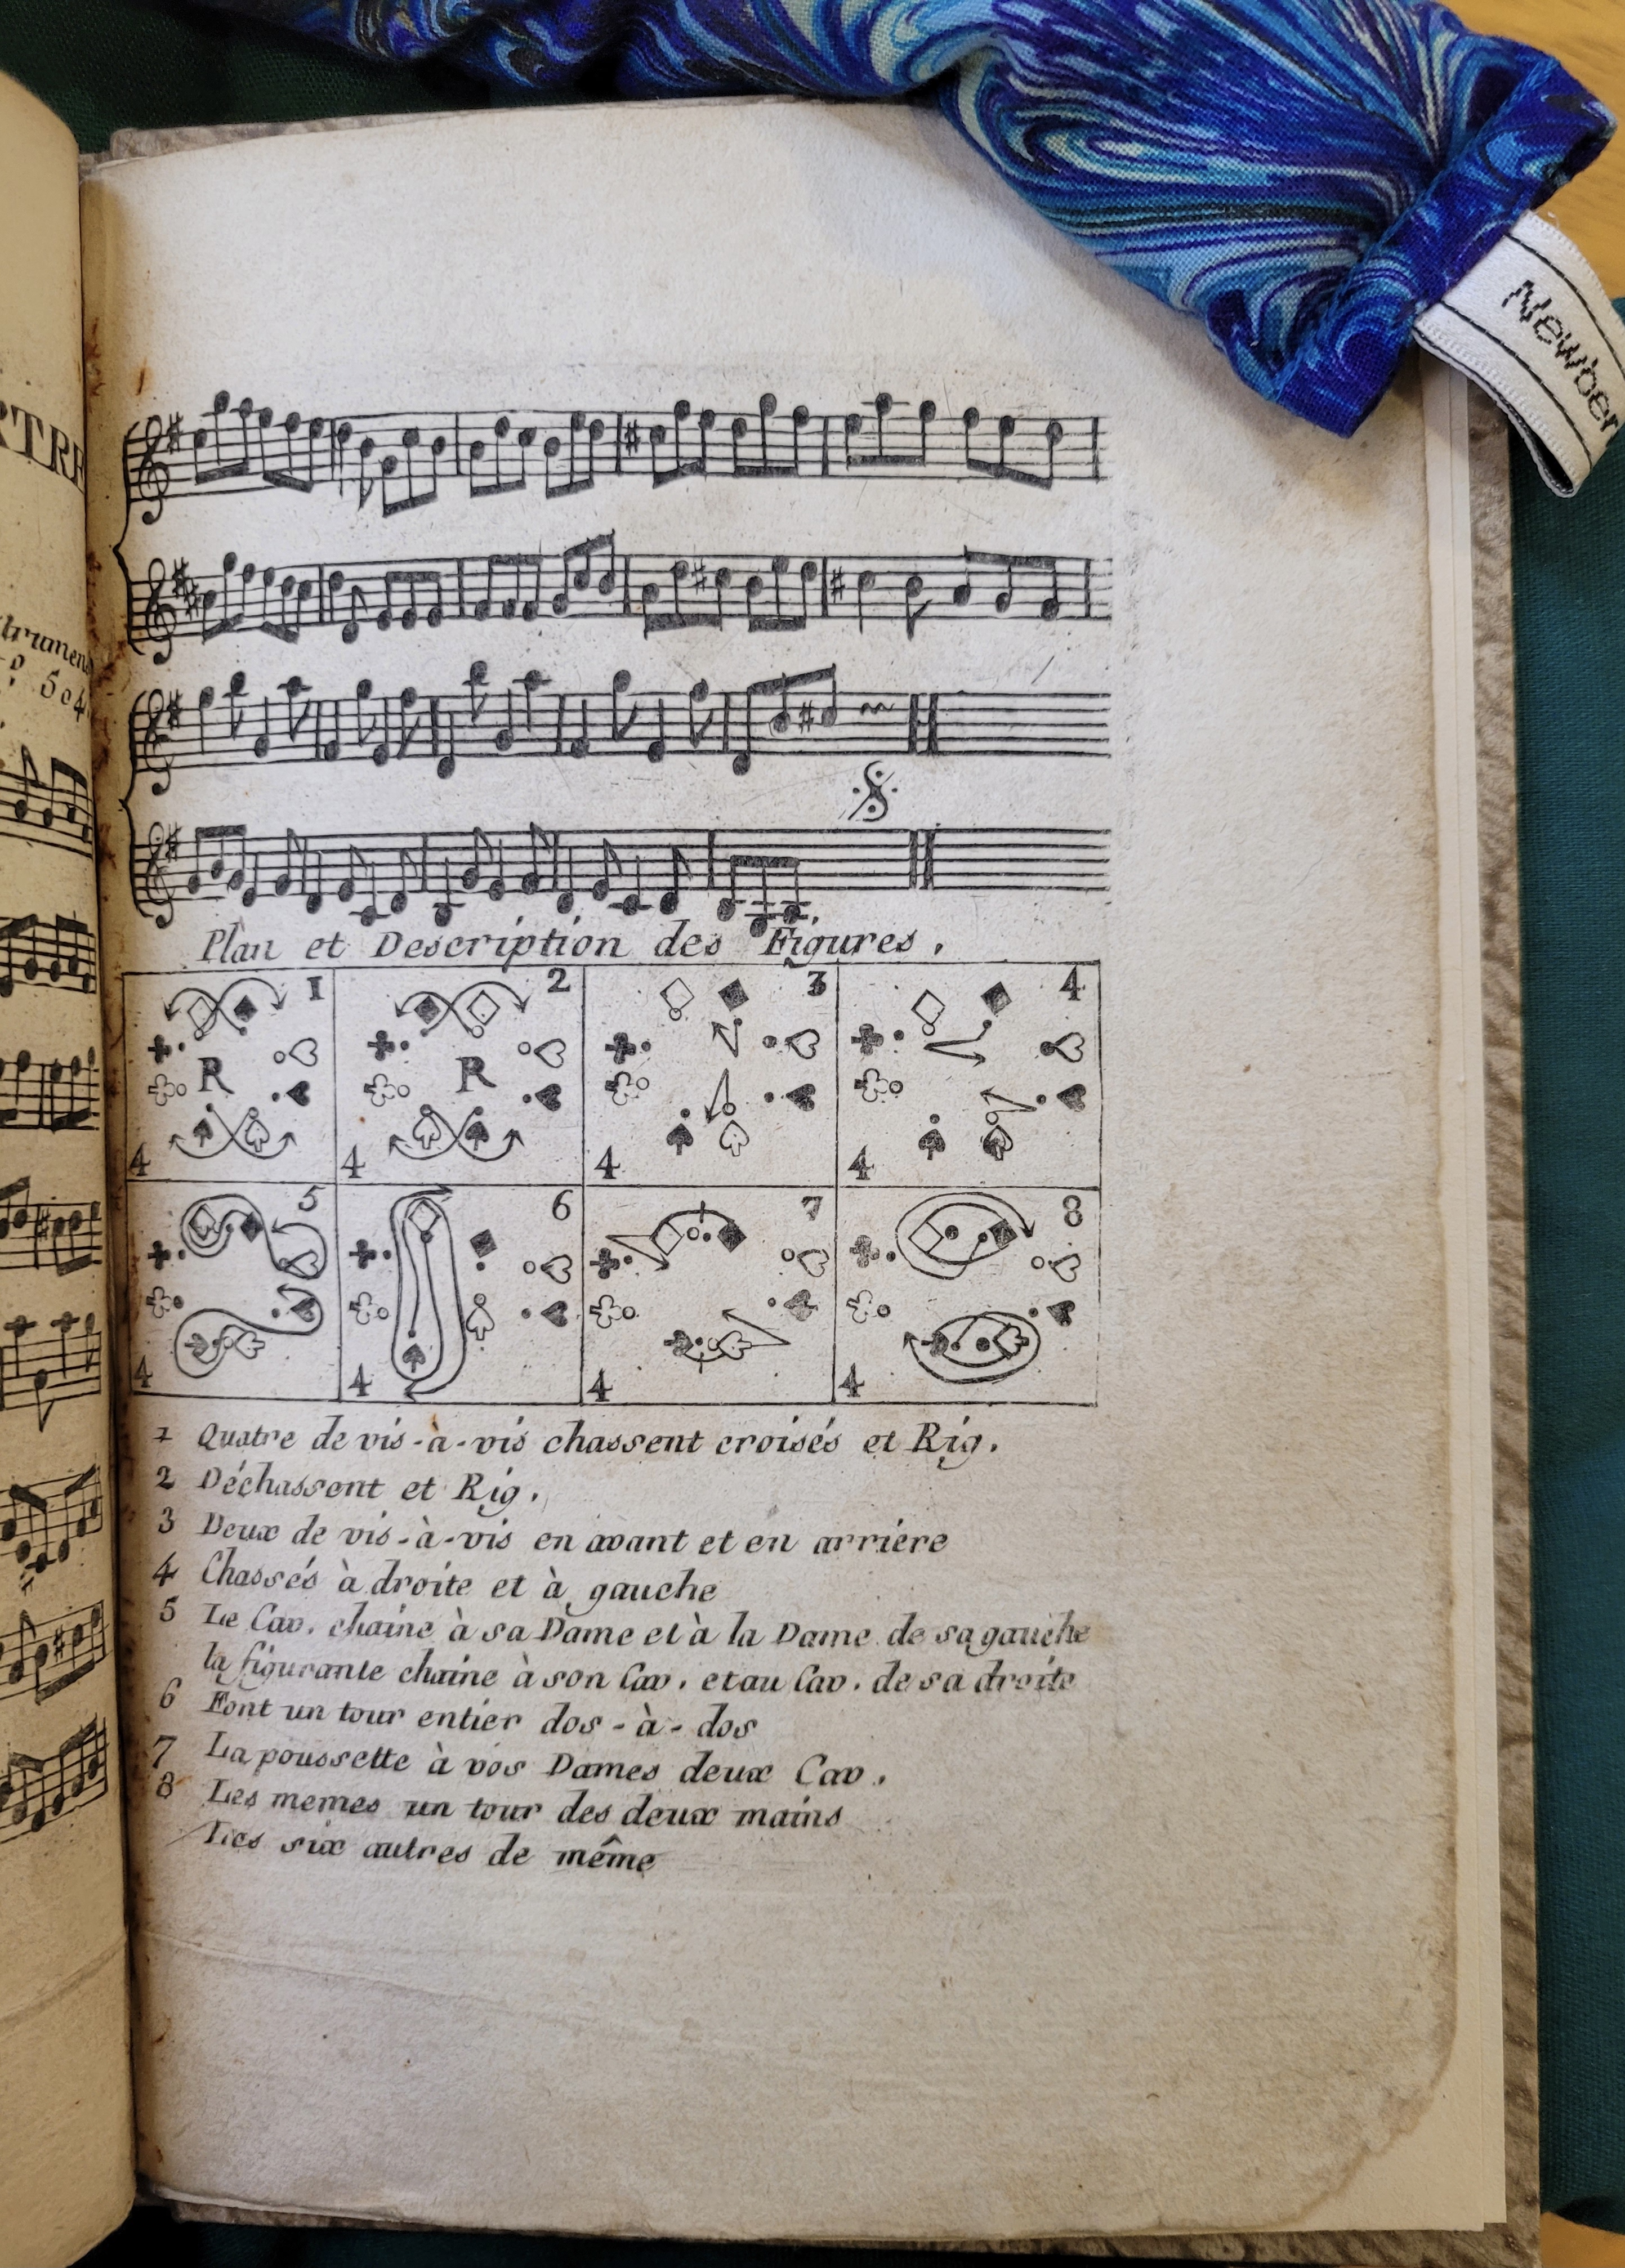 Newber
trumen
504
Plan et Description des Figures.
1 2 3 4
R R
4 4 4 4
5 6 7 8
4 4 4 4
1 Quatre de vis-à-vis chassent croisés et Rig.
2 Déchassent et Rig.
3 Deux de vis-à-vis en avant et en arriére
4 Chassés à droite et à gauche
5 Le Cav. chaine à sa Dame et à la Dame de sa gauche
la figurante chaine à son Cav. et au Cav. de sa droite
6 Font un tour entier dos-à-dos
7 La poussette à vos Dames deux Cav.
8 Les memes un tour des deux mains
Les six autres de même